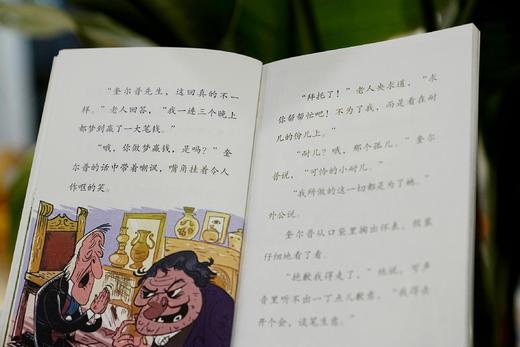 “奎尔普先生，这回真的不一
样。”老人回答，“我一连三个晚上
都梦到赢了一大笔钱。”
“哦，你做梦赢钱，是吗？”奎
尔普的话中带着嘲讽，嘴角挂着令人
作呕的笑。
“拜托了！”老人央求道，“求
你帮帮忙吧！不为了我，而是看在耐
儿的份儿上。”
“耐儿？哦，那个孤儿。”奎尔
普说，“可怜的小耐儿。”
“我所做的这一切都是为了她。”
外公说。
奎尔普从口袋里掏出怀表，假装
仔细地看了看。
“抱歉我得走了，”他说，可声
音里听不出一丁点儿歉意，“我得去
开个会，谈笔生意。”